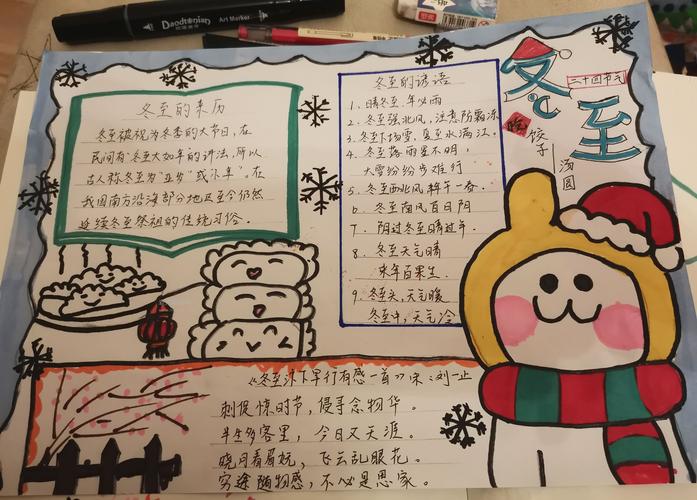 Daodtonian
Art Marker
冬至
二十四节气
吃
饺子
汤圆
冬至的来历
冬至被视为冬季的大节日，在
民间有"冬至大如年"的讲法，所以
古人称冬至为"亚岁"或"小年"。在
我国南方沿海部分地区至今仍然
延续冬至祭祖的传统习俗。
冬至的谚语
1、晴冬至，年必雨
2、冬至强北风，注意防霜冻
3、冬至下场雪，夏至水满江。
4、冬至落雨星不明，
大雪纷纷步难行
5、冬至西北风
6、冬至南风百日阴
7、阴过冬至晴过年
8、冬至天气晴
来年百果生
9、冬至头，天气暖
冬至中，天气冷
《冬至沐下早行有感一首》宋：刘一止
刺促惊时节，侵寻念物华。
半生多客里，今日又天涯。
晓月看眉妩，飞云乱眼花。
穷途随物感，不必是思家。